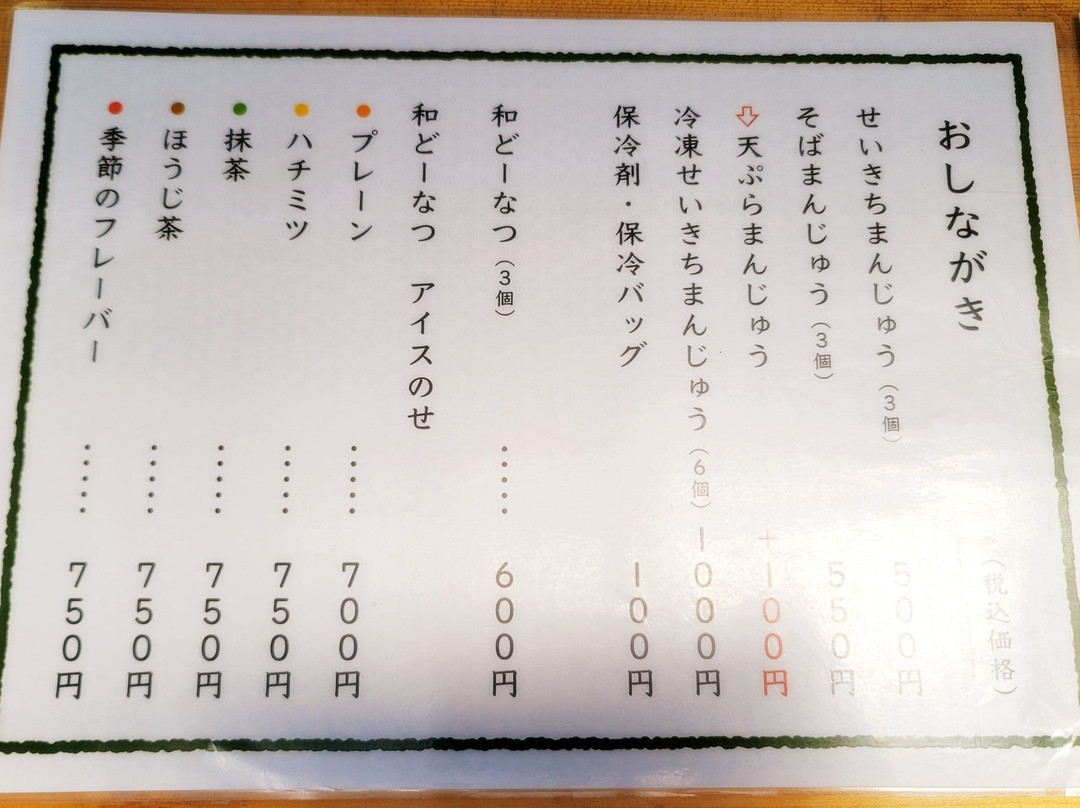 おしながき
(税込価格)
せいきちまんじゅう(3個) 500円
そばまんじゅう(3個) 550円
⇩天ぷらまんじゅう +100円
冷凍せいきちまんじゅう(6個) 1000円
保冷剤・保冷バッグ 100円
和どーなつ(3個) …… 600円
和どーなつ アイスのせ
●プレーン …… 700円
●ハチミツ …… 750円
●抹茶 …… 750円
●ほうじ茶 …… 750円
●季節のフレーバー …… 750円